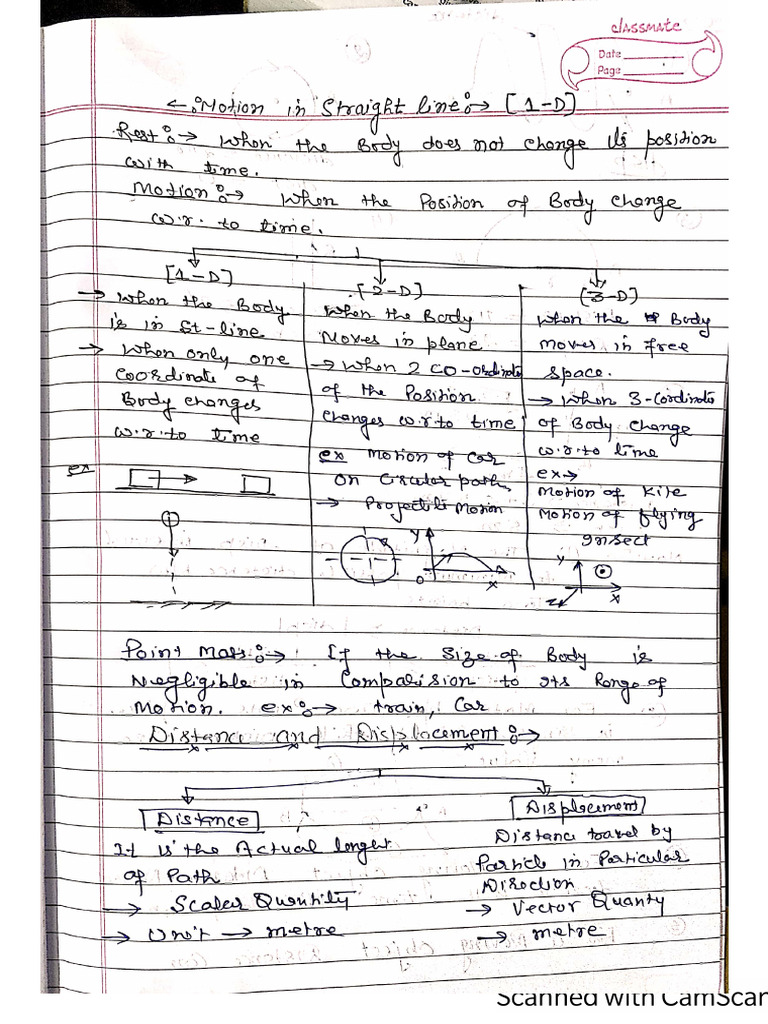 classmate
Date
Page
←: Motion in Straight line:→ [1-D]
Rest:→ When the Body does not change its position
with time.
Motion:→ When the Position of Body change
w.r. to time.
[1-D]
→ When the Body
is in St-line
→ When only one
coordinate of
Body changes
w.r.to time
ex
[2-D]
When the Body
Moves in plane
→ When 2 co-ordinate
of the Position
changes w.r.to time
ex Motion of Car
on Circular path,
→ Projectile Motion
Y
O
X
[3-D]
When the Body
moves in free
space.
→ When 3-cordinate
of Body change
w.r.to time
ex→
Motion of Kite
Motion of flying
Insect
Y
X
Z
Point Mass:→ If the Size of Body is
Negligible in Comparision to its Range of
Motion. ex:→ train, Car
Distance and Displacement:→
Distance
It is the Actual longer
of Path
→ Scaler Quantity
→ Unit → metre
Displacement
Distance travel by
Particle in Particular
Direction
→ Vector Quanty
→ metre
Scanned with CamScan